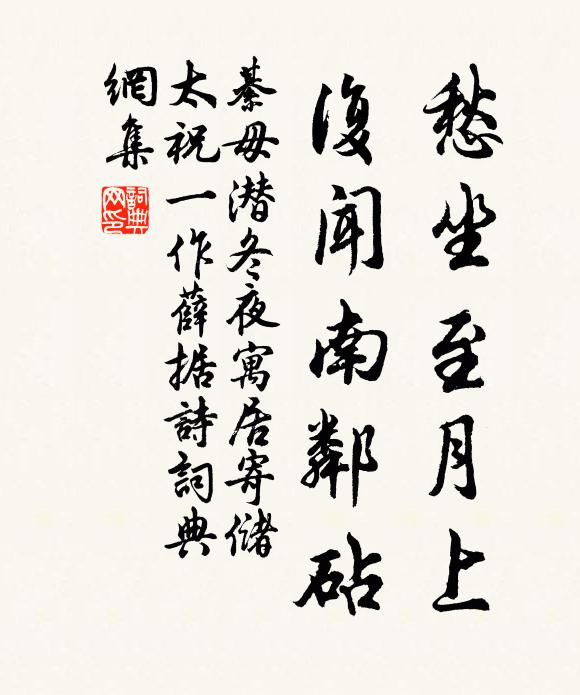 愁坐至月上
復闻南鄰砧
綦毋潜冬夜寓居寄儲
太祝一作薛据詩詞典
網集
詞典网印